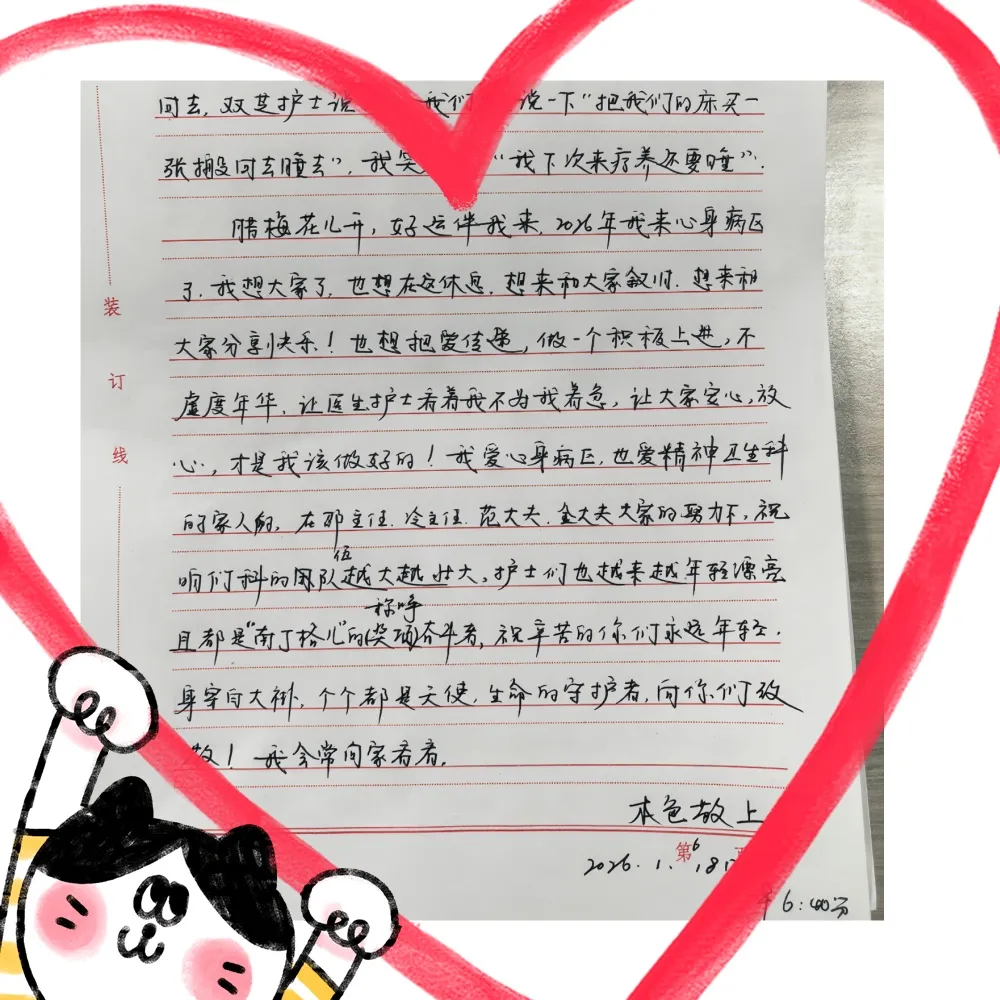 回去,双芝护士说 我们 说一下“把我们的床买一
张搬回去睡去”,我笑 “我下次来疗养还要睡”.
腊梅花儿开,好运伴我来,2026年我来心身病区
了.我想大家了,也想在这休息.想来和大家叙旧.想来和
大家分享快乐!也想把爱传递,做一个积极上进,不
虚度年华,让医生护士看着我不为我着急,让大家安心,放
心,才是我该做好的!我爱心身病区,也爱精神卫生科
的家人们,在邓主任.冷主任.范大夫.金大夫大家的努力下,祝
咱们科的团队伍越大越壮大,护士们也越来越年轻漂亮
且都是“南丁格儿”的(奖项)称呼奋斗者,祝辛苦的你们永远年轻.
身穿白大褂,个个都是天使,生命的守护者,向你们致
敬!我会常回家看看.
本色敬上
第6
2026.1.18
6:40分
装
订
线